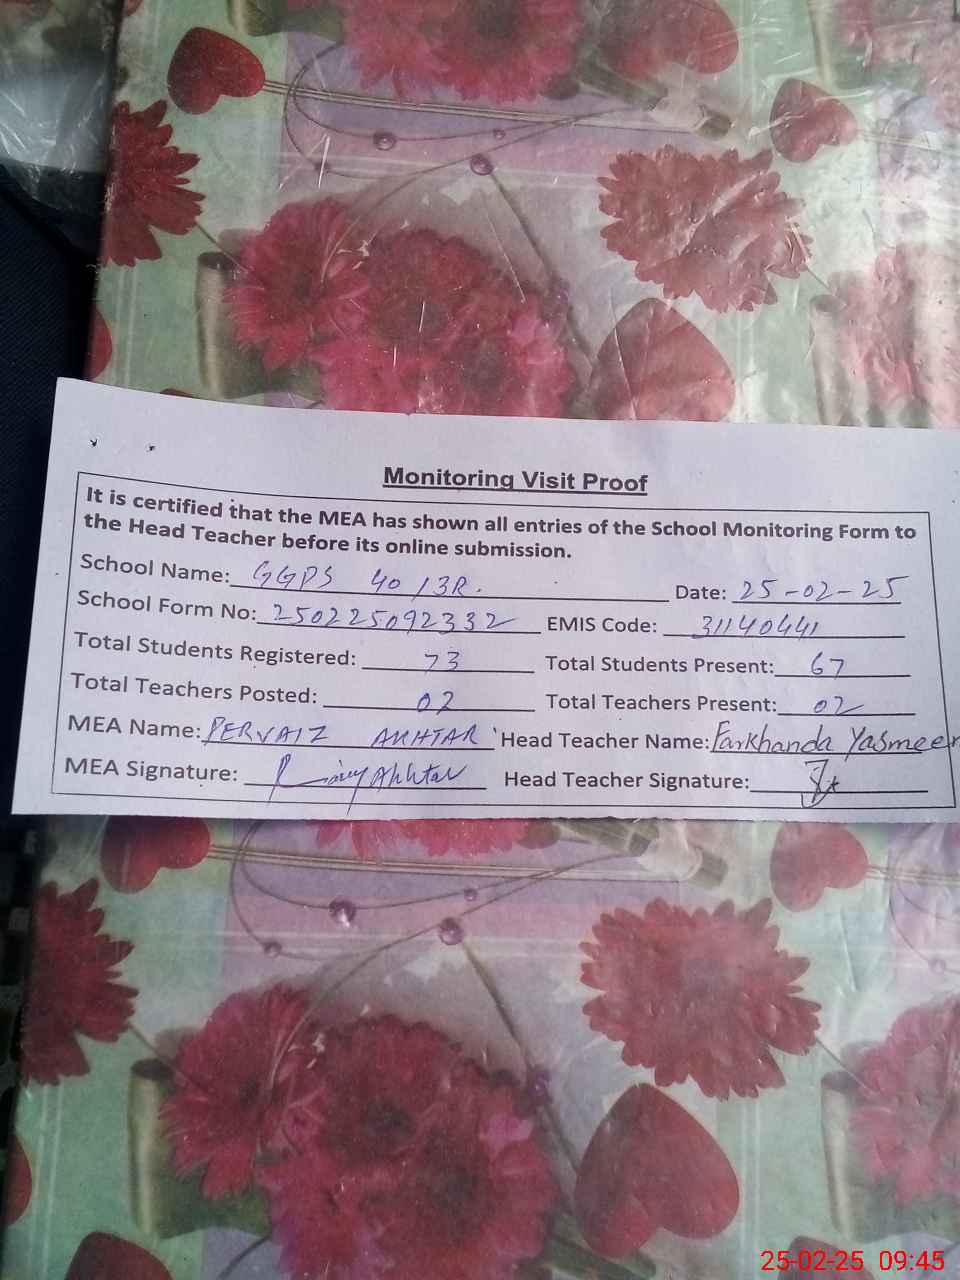 Monitoring Visit Proof
It is certified that the MEA has shown all entries of the School Monitoring Form to
the Head Teacher before its online submission.
School Name: GGPS 40/3R. Date: 25-02-25
School Form No: 250225092332 EMIS Code: 31140441
Total Students Registered: 73 Total Students Present: 67
Total Teachers Posted: 02 Total Teachers Present: 02
MEA Name: PERVAIZ AKHTAR Head Teacher Name: Farkhanda Yasmeen
MEA Signature: Akhtar Head Teacher Signature:
25-02-25 09:45